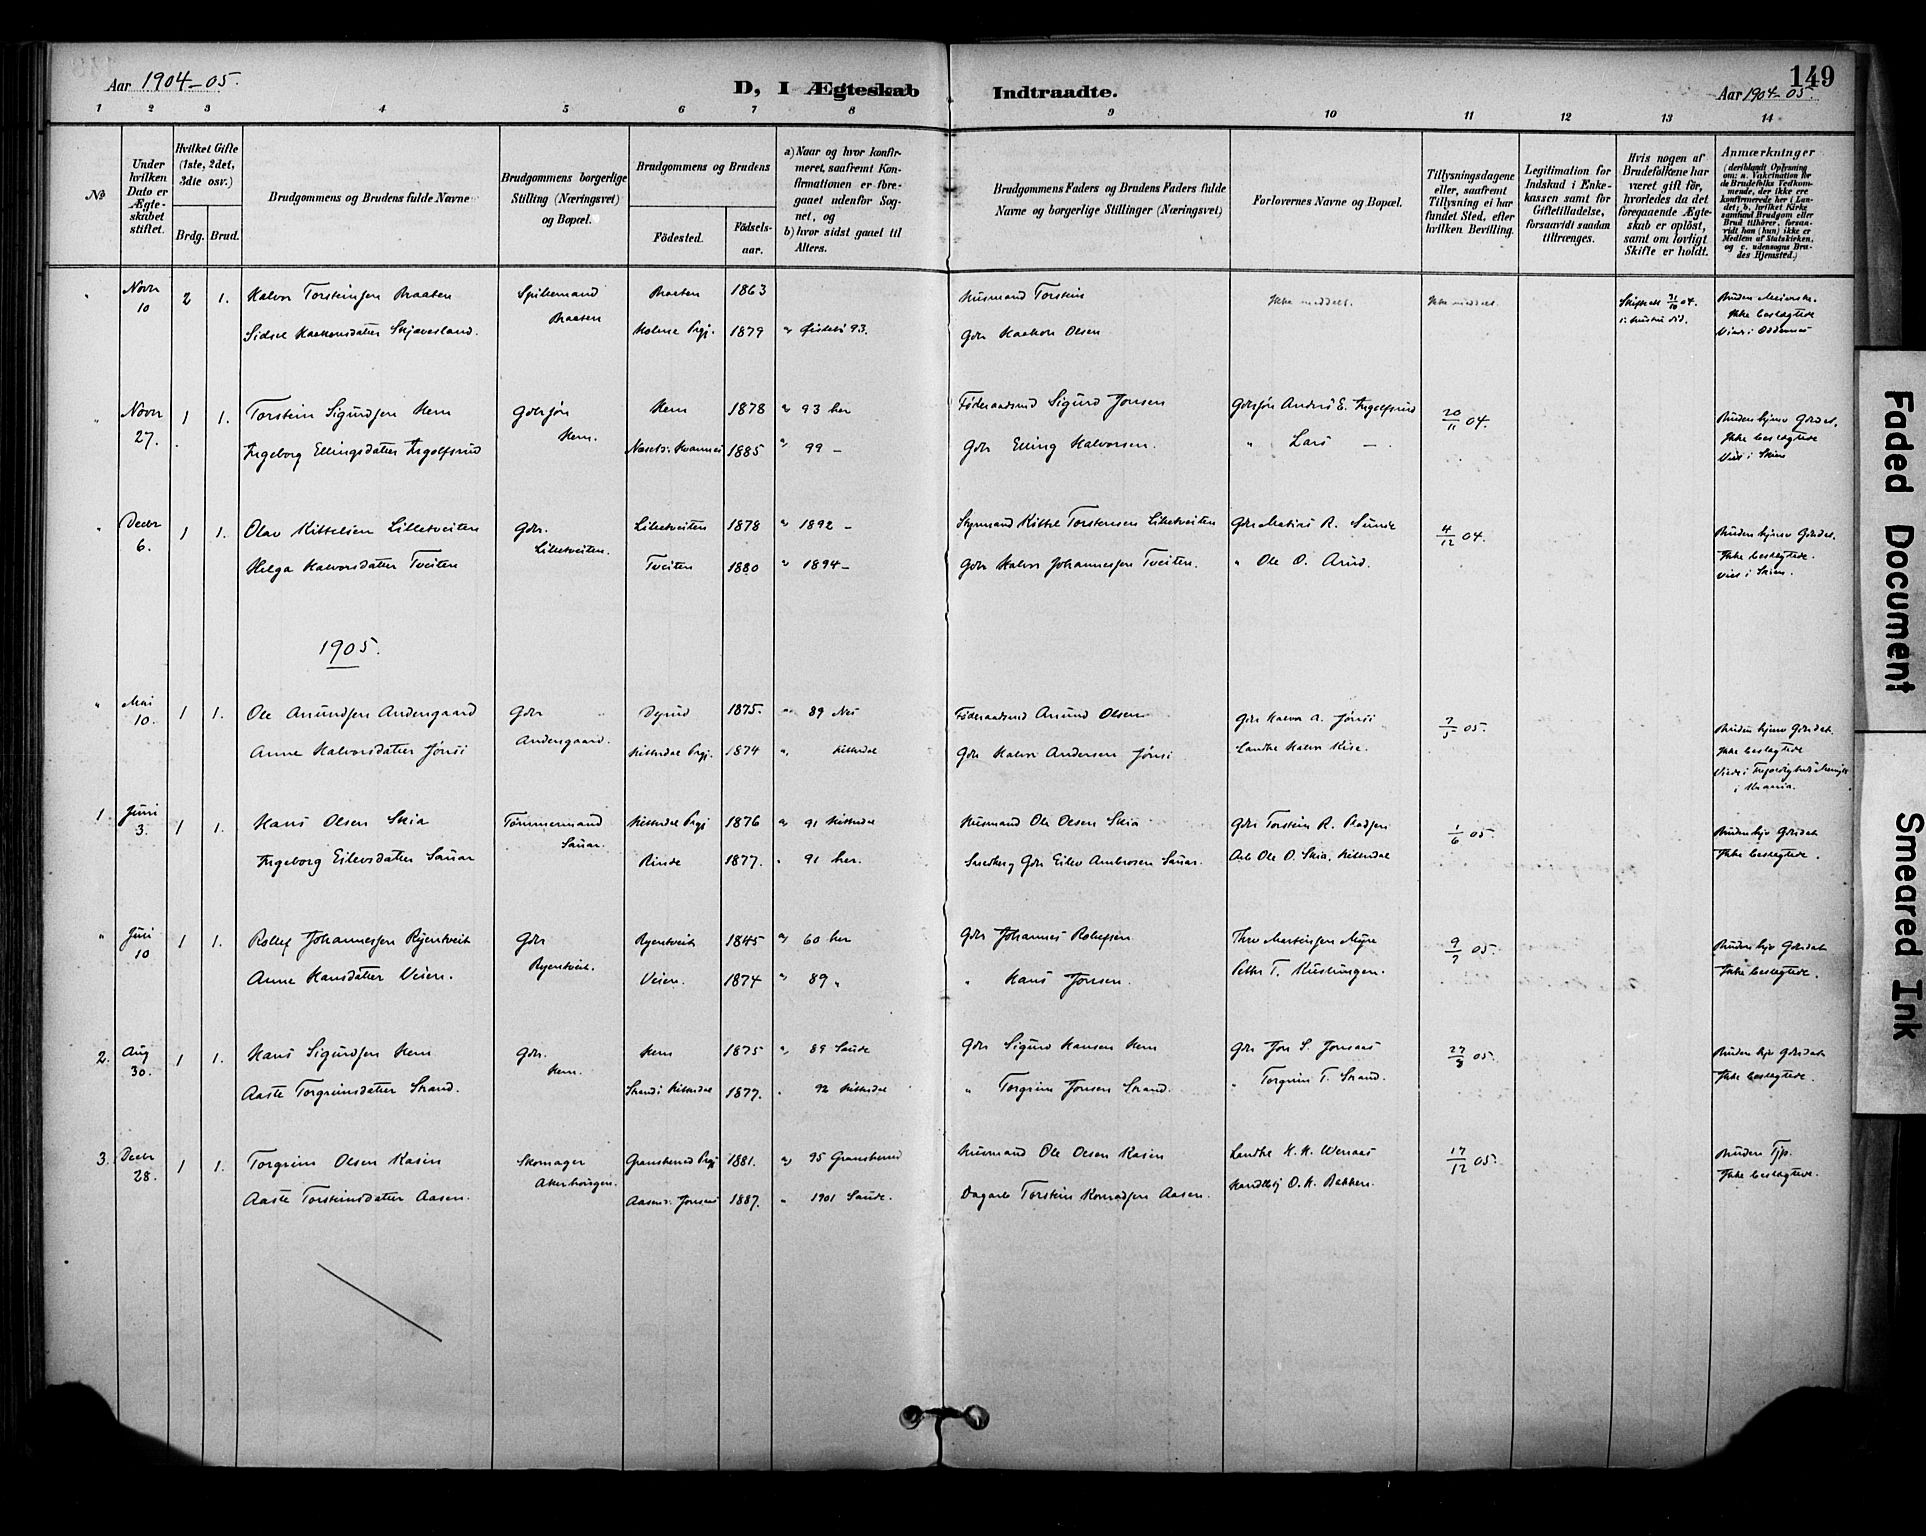 149
Aar 1904-05.
D, I Ægteskab Indtraadte.
Aar 1904-05.
1 2 3 4 5 6 7 8 9 10 11 12 13 14
№
Under hvilken Dato er Ægteskabet stiftet.
Hvilket Gifte (1ste, 2det, 3die osv.)
Brdg. Brud.
Brudgommens og Brudens fulde Navne
Brudgommens borgerlige Stilling (Næringsvei) og Bopæl.
Brudgommens og Brudens
Födested. Födsels-aar.
a) Naar og hvor konfirmeret, saafremt Konfirmationen er foregaaet udenfor Sognet, og
b) hvor sidst gaaet til Alters.
Brudgommens Faders og Brudens Faders fulde Navne og borgerlige Stillinger (Næringsvei)
Forlovernes Navne og Bopæl.
Tillysningsdagene eller, saafremt Tillysning ei har fundet Sted, efter hvilken Bevilling.
Legitimation for Indskud i Enkekassen samt for Giftetilladelse, forsaavidt saadan tiltrænges.
Hvis nogen af Brudefolkene har været gift för, hvorledes da det foregaaende Ægteskab er oplöst, samt om lovligt Skifte er holdt.
Anmærkninger
(deriblandt Oplysning om: a. Vakcination for de Brudefolks Vedkommende, der ikke ere konfirmerede her i Landet; b. hvilket Kirkesamfund Brudgom eller Brud tilhörer, forsaavidt han (hun) ikke er Medlem af Statskirken, og c. udensogns Brudes Hjemsted.)
" Novr 10 2 1. Halvor Torsteinsen Braaten Spillemand Braaten Braaten 1863 Husmand Torstein Ikke meddelt. Ikke meddelt. Skifteatt 31/10 04.
Sidsel Haakonsdatter Skjævesland. Holme Prgj. 1879 93. Gdr Haakon Olsen Ikke beslægtede
Viede i Oddernes
" Novr 27. 1 1. Torstein Sigurdsen Hem Gdrsjøn Hem. Hem 1878 93 her Föderaadsmd Sigurd Jonsen Gdrsjøn Andres E. Ingolfsrud 20/11 04.
Ingeborg Ellingsdatter Ingolfsrud 1885 " 99 - Gdr Elling Halvorsen. " Lars -
Ikke beslægtede
Viet i Skien
" Decbr 6. 1 1. Olav Kittelsen Lilletveiten Gdr. Lilletveiten. Lilletveiten 1878 1892 - Kittel Torstensen Lilletveiten Gdr Matias R. Sunde 4/12 04.
Helga Halvorsdatter Tveiten Tveiten 1880 1894 - Gdr Halvor Johannessen Tveiten. " Ole O. Arud.
Ikke beslægtede.
Viet i Skien.
1905.
" Mai 10. 1 1. Ole Anundsen Andersgaard Gdr Andersgaard. Dyrud 1875. 89 Nes Föderaadsmd Anund Olsen Gdr Halvor A. Jønsi 7/5 05.
Anne Halvorsdatter Jønsi Hitterdal Prgj. 1874 Hitterdal Gdr Halvor Andersen Jønsi Landhr Halvor Kise.
Ikke beslægtede
1. Juni 3. 1 1. Hans Olsen Skia Tømmermand Sauar. Hitterdal Prgj 1876 91 Hitterdal Husmand Ole Olsen Skia Gdr Torstein R. 1/6 05.
Ingeborg Eilevsdatter Sauar Rinde 1877. 91 her. Gdr Eilev Ambrosen Sauar. Arb Ole O. Skia, Hitterdal
Ikke beslægtede.
" Juni 10 1 1. Rollef Johannessen Ryentveit Gdr Ryentveit. Ryentveit 1845 60 her Gdr Johannes Rolefsen Thro Martinsen Myre 9/7 05.
Anne Hansdatter Veien. Veien. 1874 " 89 " " Hans Jonsen. Peder T.
Ikke beslægtede.
2. Aug 30. 1 1. Hans Sigurdsen Hem Gdr. Hem. Hem 1875 89 Saude Gdr Sigurd Hansen Hem Gdr Jon S. Jonsaas 27/8 05.
Aaste Torgrimsdatter Strand. Strand i Hitterdal 1877. 92 Hitterdal " Torgrim Jonsen Strand. " Torgrim T. Strand.
Ikke beslægtede.
3. Decbr 28. 1 1. Torgrim Olsen Kasin Skomager Gransherred Prgj 1881. 95 Gransherred Husmand Ole Olsen Kasin Landhr H. K. 17/12 05.
Aaste Torsteinsdatter Aasen. 1887. " 1901 Saude. Dagarb Torstein Aasen. Handlbtj O. H. Bakken.
Ikke beslægtede.
Faded Document
Smeared Ink